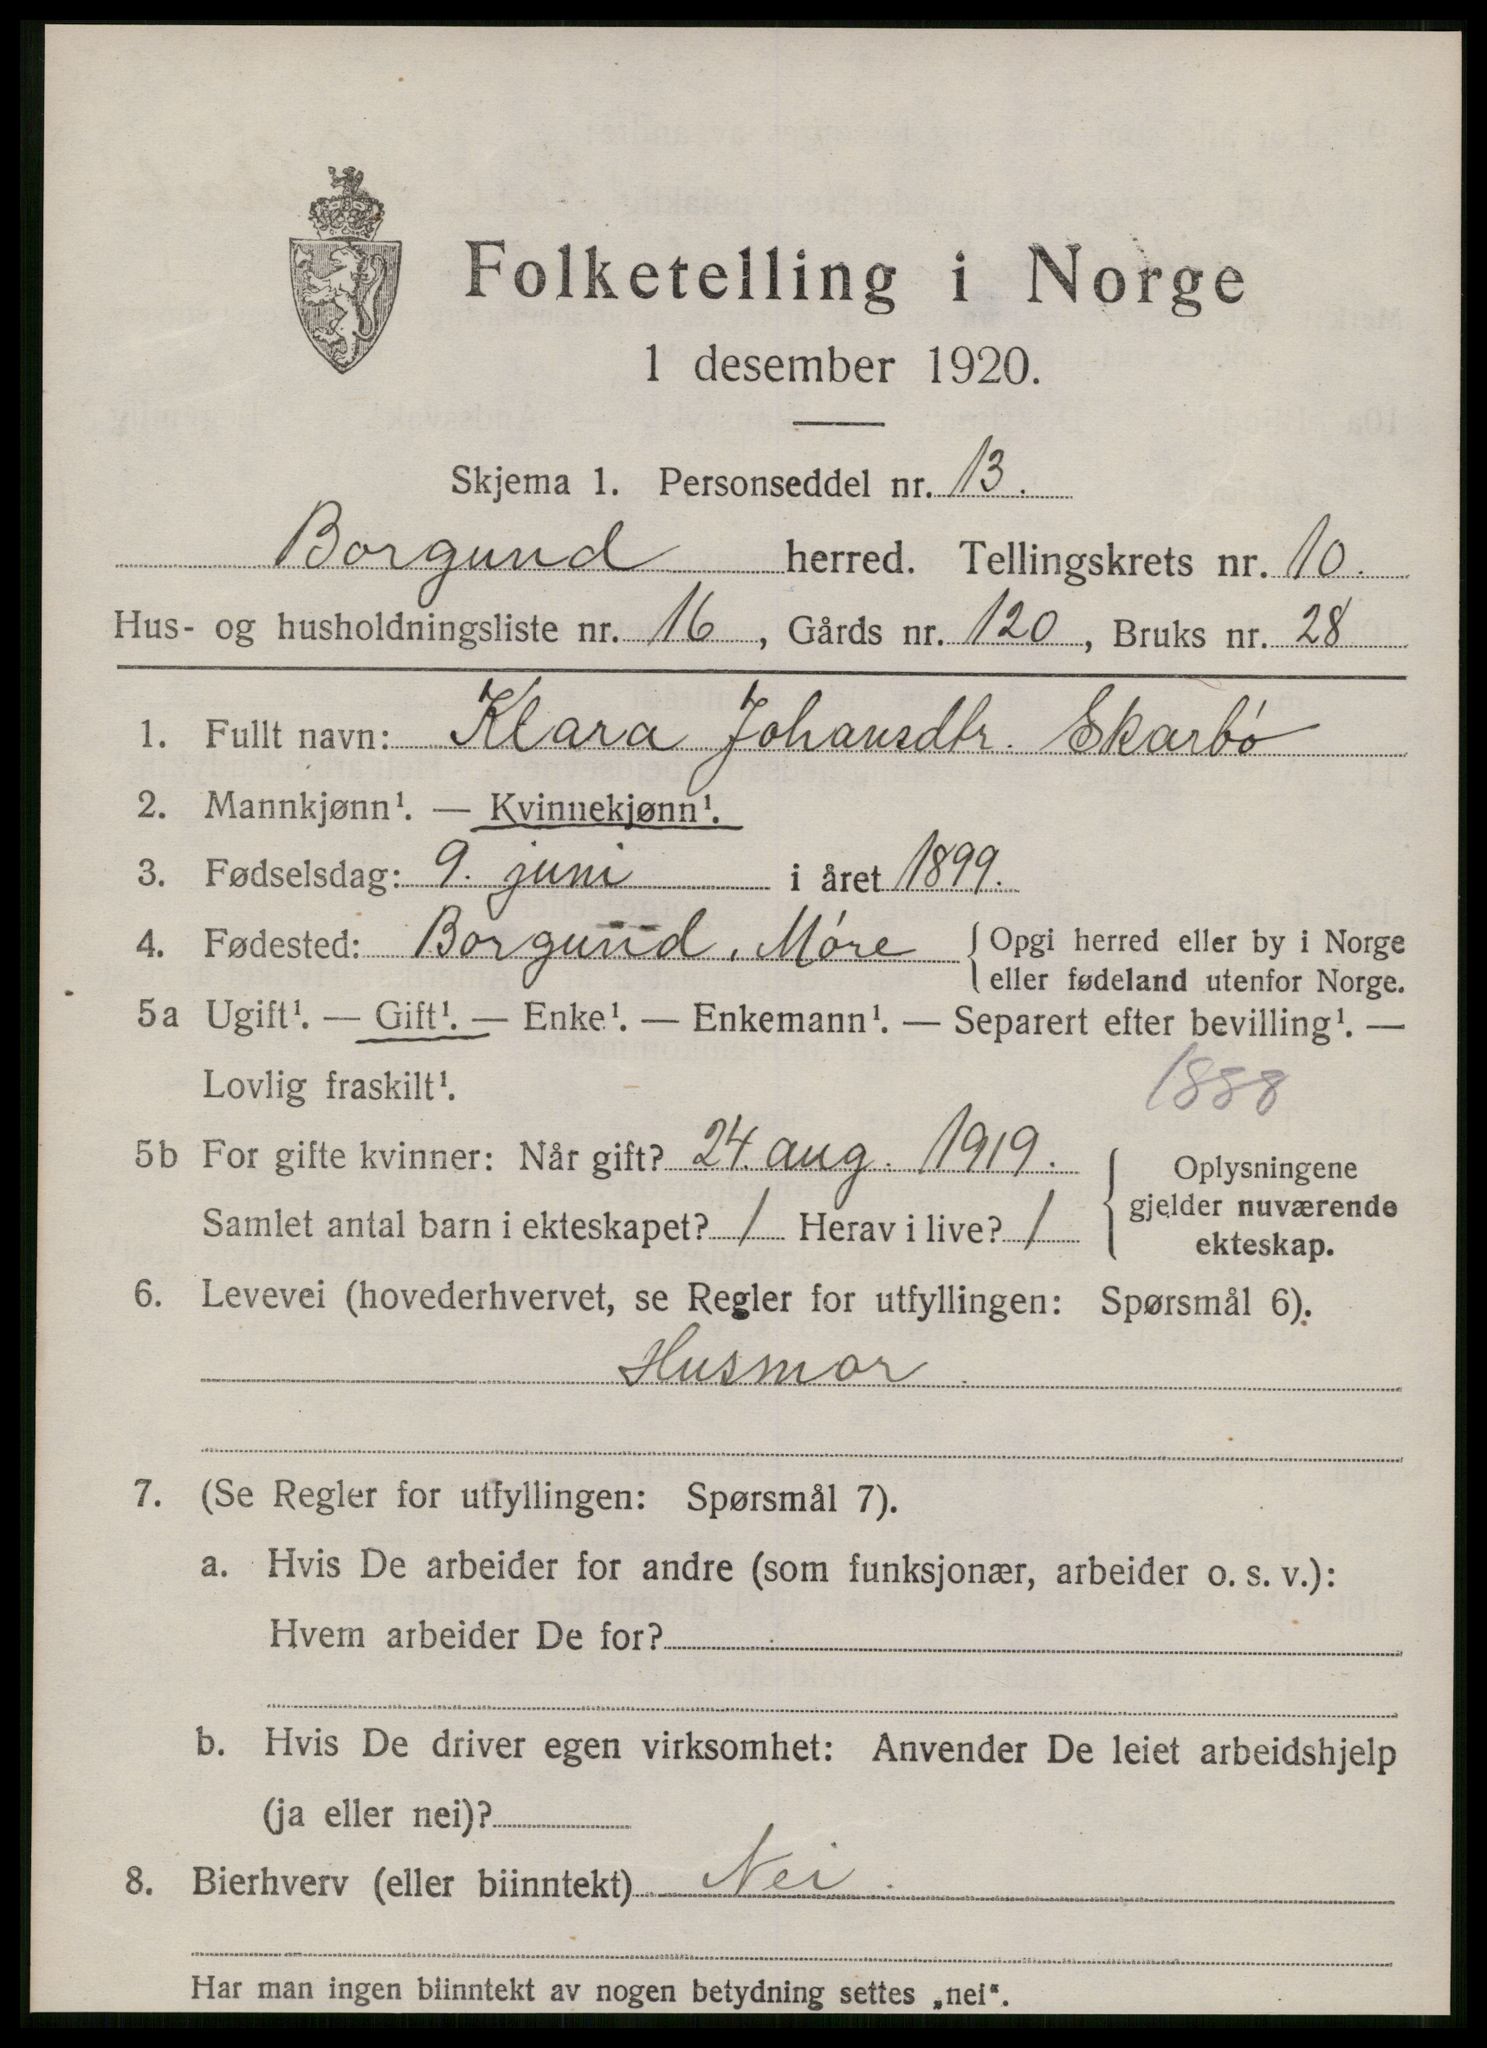 Folketelling i Norge
1 desember 1920.
Skjema 1. Personseddel nr. 13.
Borgund herred. Tellingskrets nr. 10.
Hus- og husholdningsliste nr. 16, Gårds nr. 120, Bruks nr. 28
1. Fullt navn: Klara Johansdtr. Skarbó
2. Mannkjønn¹. — Kvinnekjønn¹.
3. Fødselsdag: 9. juni i året 1899.
4. Fødested: Borgund, Móre { Opgi herred eller by i Norge
eller fødeland utenfor Norge.
5a Ugift¹. — Gift¹. — Enke¹. — Enkemann¹. — Separert efter bevilling¹. —
Lovlig fraskilt¹. 1888
5b For gifte kvinner: Når gift? 24. aug. 1919.
Samlet antal barn i ekteskapet? 1 Herav i live? 1
{ Oplysningene
gjelder nuværende
ekteskap.
6. Levevei (hovederhvervet, se Regler for utfyllingen: Spørsmål 6).
Husmor.
7. (Se Regler for utfyllingen: Spørsmål 7).
a. Hvis De arbeider for andre (som funksjonær, arbeider o. s. v.):
Hvem arbeider De for?
b. Hvis De driver egen virksomhet: Anvender De leiet arbeidshjelp
(ja eller nei)?
8. Bierhverv (eller biinntekt) Nei.
Har man ingen biinntekt av nogen betydning settes „nei".